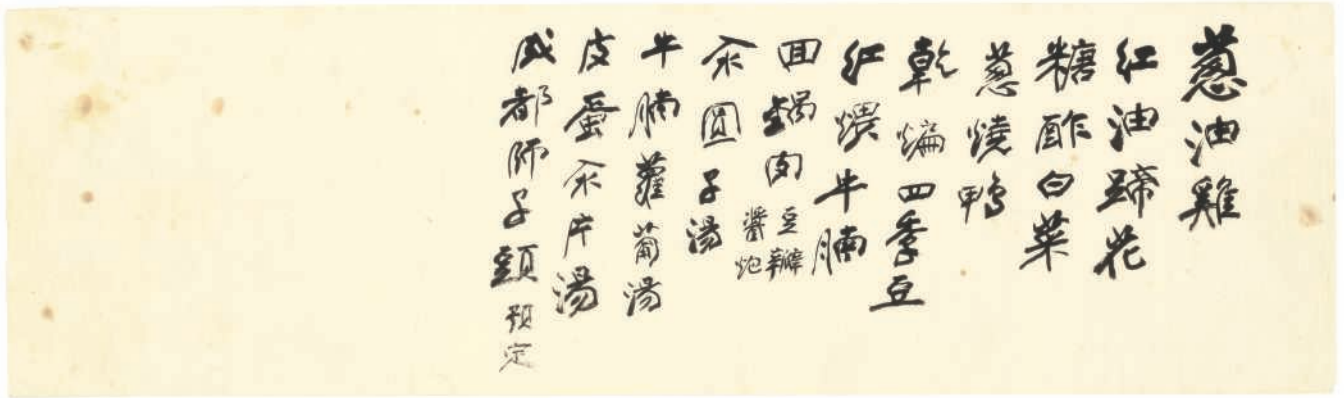 蔥油雞
紅油蹄花
糖酢白菜
蔥燒鴨
乾煸四季豆
紅牛腩
回鍋肉 豆瓣
醬炮
汆圓子湯
牛腩蘿蔔湯
皮蛋汆片湯
成都師子頭 預定